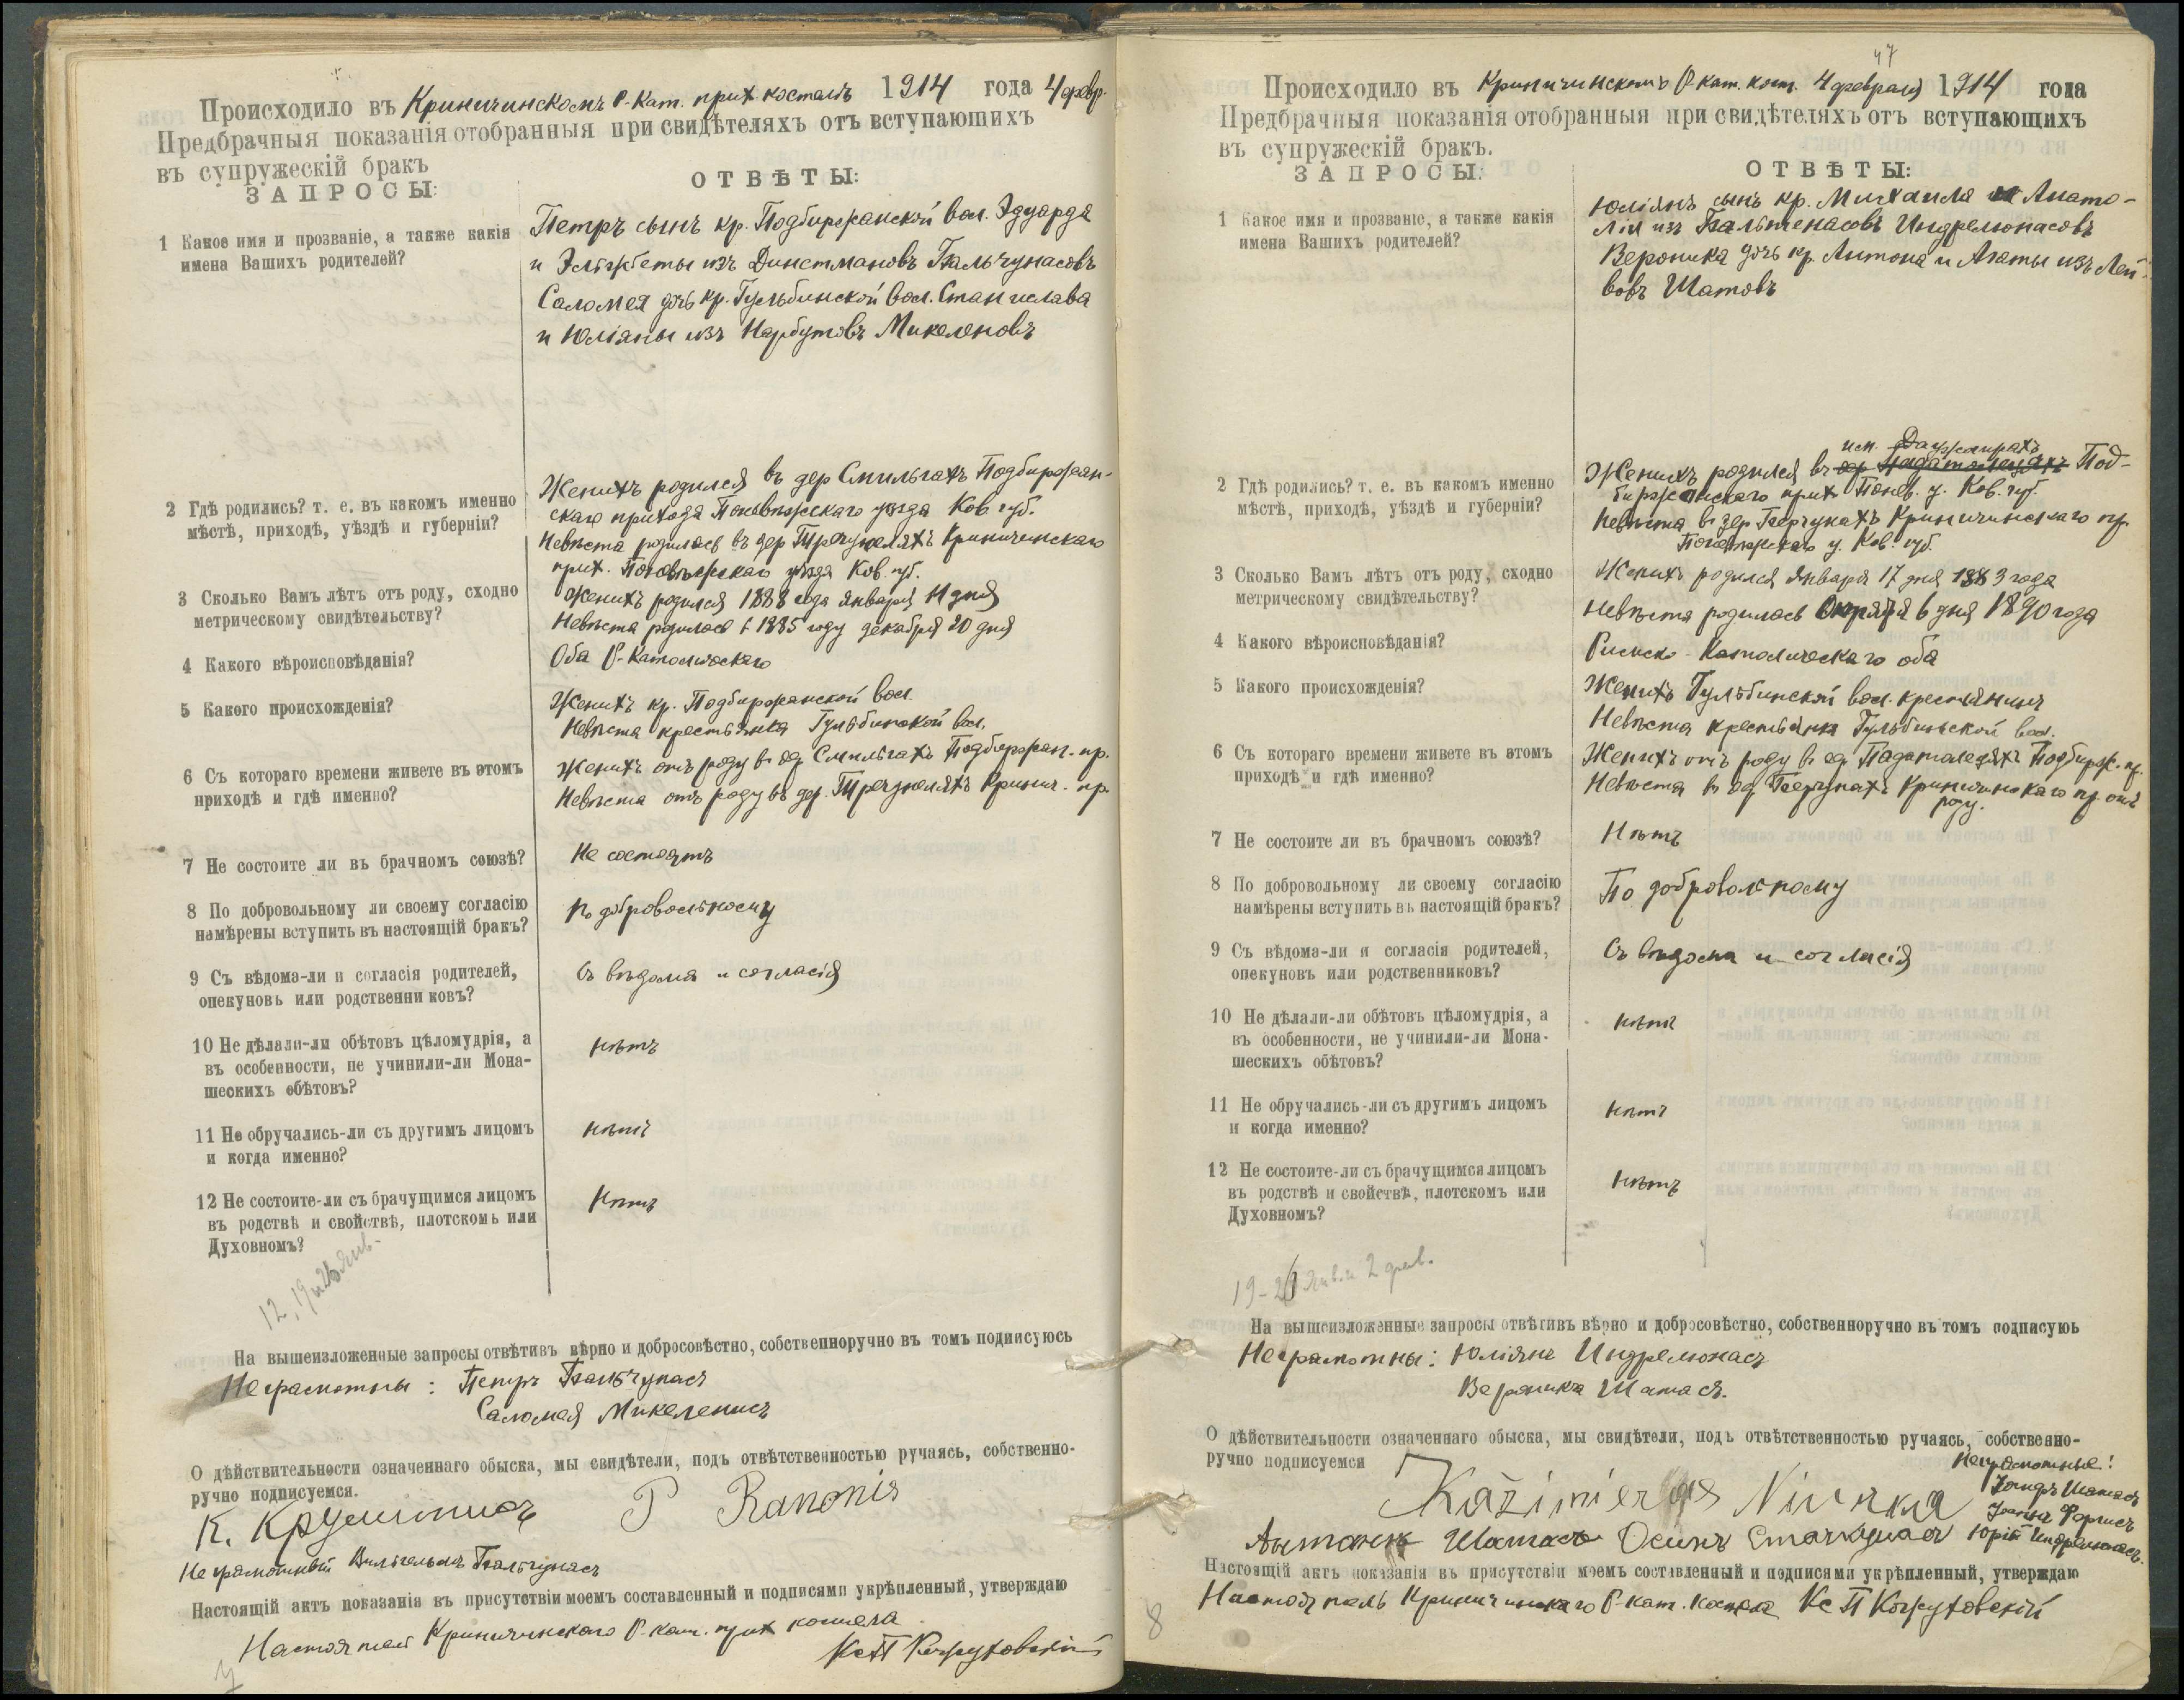 Происходило въ Криничинскомъ Р.-Кат. прих костелѣ 1914 года 4 февр.
Предбрачныя показанія отобранныя при свидѣтеляхъ отъ вступающихъ
въ супружескій бракъ
ЗАПРОСЫ:
ОТВѢТЫ:
1 Какое имя и прозваніе, а также какія
имена Вашихъ родителей?
Петръ сынъ кр. Подбиржанской вол. Эдуарда
и Эльжбеты изъ Динстмановъ Бальчунасовъ
Саломея дочь кр. Гульбинской вол. Станислава
и Юліяны изъ Нарбутовъ Микеленовъ
2 Гдѣ родились? т. е. въ какомъ именно
мѣстѣ, приходѣ, уѣздѣ и губерніи?
Женихъ родился въ дер Смильгахъ Подбиржан-
скаго прихода Поневѣжскаго уѣзда Ков. губ.
Невѣста родилась въ дер Тречунеляхъ Криничинскаго
прих. Поневѣжскаго уѣзда Ков. губ.
3 Сколько Вамъ лѣтъ отъ роду, сходно
метрическому свидѣтельству?
Женихъ родился 1888 года января 11 дня
Невѣста родилась в 1885 году декабря 20 дня
4 Какого вѣроисповѣданія?
Оба Р.-Католическаго
5 Какого происхожденія?
Женихъ кр. Подбиржанской вол.
Невѣста крестьянка Гульбинской вол.
6 Съ котораго времени живете въ этомъ
приходѣ и гдѣ именно?
Женихъ отъ роду в дер Смильгахъ Подбиржан. пр.
Невѣста отъ роду въ дер. Тречунеляхъ Кринич. пр.
7 Не состоите ли въ брачномъ союзѣ?
Не состоятъ
8 По добровольному ли своему согласію
намѣрены вступить въ настоящій бракъ?
По добровольному
9 Съ вѣдома-ли и согласія родителей,
опекуновъ или родственни ковъ?
Съ вѣдома и согласія
10 Не дѣлали-ли обѣтовъ цѣломудрія, а
въ особенности, не учинили-ли Мона-
шескихъ обѣтовъ?
Нѣтъ
11 Не обручались-ли съ другимъ лицомъ
и когда именно?
Нѣтъ
12 Не состоите-ли съ брачущимся лицомъ
въ родствѣ и свойствѣ, плотскомъ или
Духовномъ?
Нѣтъ
12, 19 и 26 янв.
На вышеизложенные запросы отвѣтивъ вѣрно и добросовѣстно, собственноручно въ томъ подписуюсь
Неграмотны: Петръ Бальчунасъ
Саломея Микеленисъ
О дѣйствительности означеннаго обыска, мы свидѣтели, подъ отвѣтственностью ручаясь, собственно-
ручно подписуемся.
P Ramonis
Неграмотный Вильгельмъ Бальчунасъ
Настоящій актъ показанія въ присутствіи моемъ составленный и подписями укрѣпленный, утверждаю
Настоятель Криничинскаго Р.-кат. прих костела
47
Происходило въ Криничинскомъ Р.-кат. кост. 4 февраля 1914 года
Предбрачныя показанія отобранныя при свидѣтеляхъ отъ вступающихъ
въ супружескій бракъ.
ЗАПРОСЫ:
ОТВѢТЫ:
1 Какое имя и прозваніе, а также какія
имена Вашихъ родителей?
Юліянъ сынъ кр. Михаила и Анато-
ліи изъ Бальтенасовъ Индрелюнасовъ
Вероника дочь кр. Антона и Агаты изъ Лей-
бовъ Шатовъ
2 Гдѣ родились? т. е. въ какомъ именно
мѣстѣ, приходѣ, уѣздѣ и губерніи?
Женихъ родился въ Под-
биржанскаго прих Понев. у. Ков. губ.
Невѣста в дер Берчунахъ Криничинскаго пр.
Поневѣжскаго у. Ков. губ.
3 Сколько Вамъ лѣтъ отъ роду, сходно
метрическому свидѣтельству?
Женихъ родился января 17 дня 1883 года
Невѣста родилась 6 дня 1890 года
4 Какого вѣроисповѣданія?
Римско-Католическаго оба
5 Какого происхожденія?
Женихъ Гульбинской вол. крестьянинъ
Невѣста крестьянка Гульбинской вол.
6 Съ котораго времени живете въ этомъ
приходѣ и гдѣ именно?
Женихъ отъ роду в дер Подбирж. пр.
Невѣста в дер Берчунахъ Криничинскаго пр. отъ
роду.
7 Не состоите ли въ брачномъ союзѣ?
Нѣтъ
8 По добровольному ли своему согласію
намѣрены вступить въ настоящій бракъ?
По добровольному
9 Съ вѣдома-ли и согласія родителей,
опекуновъ или родственниковъ?
Съ вѣдома и согласія
10 Не дѣлали-ли обѣтовъ цѣломудрія, а
въ особенности, не учинили-ли Мона-
шескихъ обѣтовъ?
Нѣтъ
11 Не обручались-ли съ другимъ лицомъ
и когда именно?
Нѣтъ
12 Не состоите-ли съ брачущимся лицомъ
въ родствѣ и свойствѣ, плотскомъ или
Духовномъ?
Нѣтъ
19-26 янв. и 2 фев.
На вышеизложенные запросы отвѣтивъ вѣрно и добросовѣстно, собственноручно въ томъ подписуюь
Неграмотны: Юліянъ Индрелюнасъ
Вероника Шатасъ.
О дѣйствительности означеннаго обыска, мы свидѣтели, подъ отвѣтственностью ручаясь, собственно-
ручно подписуемся
Неграмотные:
Kazimieras
Антонъ Шатасъ Осипъ Станкунасъ Юрій Индрелюнасъ.
Настоящій актъ показанія въ присутствіи моемъ составленный и подписями укрѣпленный, утверждаю
Настоятель Криничинскаго Р-кат. костела
8